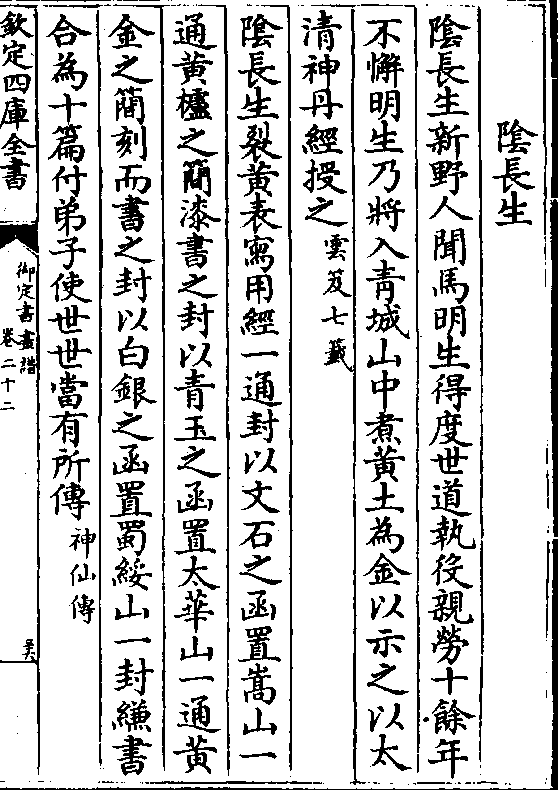 陰長生
陰長生新野人聞馬明生得度世道執役親勞十餘年
不懈明生乃將入青城山中煮黃土為金以示之以太
清神丹經授之雲笈七籤
陰長生裂黃表寫用經一通封以文石之函置嵩山一
通黃櫨之簡漆書之封以青玉之函置太華山一通黃
金之簡刻而書之封以白銀之函置蜀綏山一封縑書
合為十篇付弟子使世世當有所傳神仙傳
欽定四庫全書
御定書畫譜
卷二十二